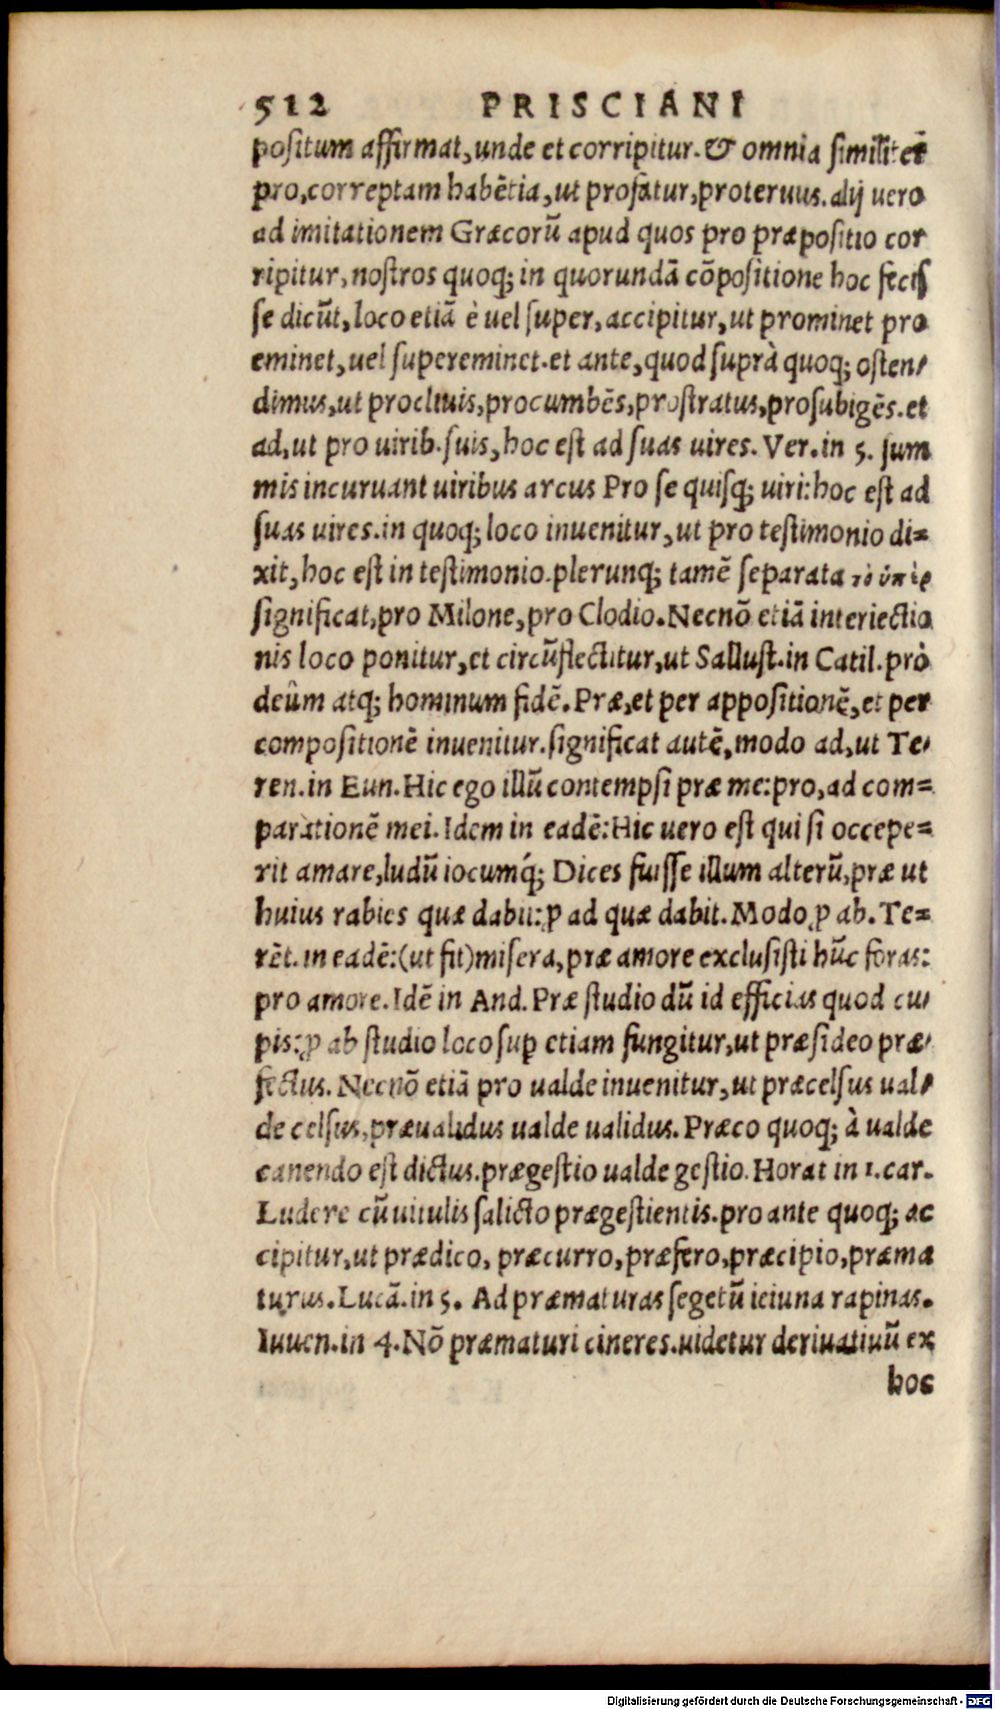 512 PRISCIANI
positum affirmat, unde et corripitur. & omnia similiter
pro, correptam habētia, ut profatur, proteruus. alij uero
ad imitationem Græcorū apud quos pro præpositio cor
ripitur, nostros quoq; in quorundā cōpositione hoc fecis
se dicūt, loco etiā è uel super, accipitur, ut prominet pro
eminet, uel supereminet. et ante, quod suprà quoq; osten-
dimus, ut procliuis, procumbēs, prostratus, prosubigēs. et
ad, ut pro uirib. suis, hoc est ad suas uires. Ver. in 5. sum
mis incuruant uiribus arcus Pro se quisq; uiri: hoc est ad
suas uires. in quoq; loco inuenitur, ut pro testimonio di=
xit, hoc est in testimonio. plerunq; tamē separata τὸ ὑπὲρ
significat, pro Milone, pro Clodio. Necnō etiā interiectio
nis loco ponitur, et circūflectitur, ut Sallust. in Catil. prò
deûm atq; hominum fidē. Præ, et per appositionē, et per
compositionē inuenitur. significat autē, modo ad, ut Te-
ren. in Eun. Hic ego illū contempsi præ me: pro, ad com=
parationē mei. Idem in eadē: Hic uero est qui si occepe=
rit amare, ludū iocumq́; Dices fuisse illum alterū, præ ut
huius rabies quæ dabit: ꝓ ad quæ dabit. Modo ꝓ ab. Te=
rēt. in eadē: (ut fit) misera, præ amore exclusisti hūc foras:
pro amore. Idē in And. Præ studio dū id efficias quod cu-
pis: ꝓ ab studio loco suꝑ etiam fungitur, ut præsideo præ-
fectus. Necnō etiā pro ualde inuenitur, ut præcelsus ual-
de celsus, præualidus ualde ualidus. Præco quoq; à ualde
canendo est dictus. prægestio ualde gestio. Horat in 1. car.
Ludere cū uitulis salicto prægestientis. pro ante quoq; ac
cipitur, ut prædico, præcurro, præfero, præcipio, præma
turus. Lucā. in 5. Ad præmaturas segetū ieiuna rapinas.
Iuuen. in 4. Nō præmaturi cineres. uidetur deriuatiuū ex
hoc
Digitalisierung gefördert durch die Deutsche Forschungsgemeinschaft - DFG